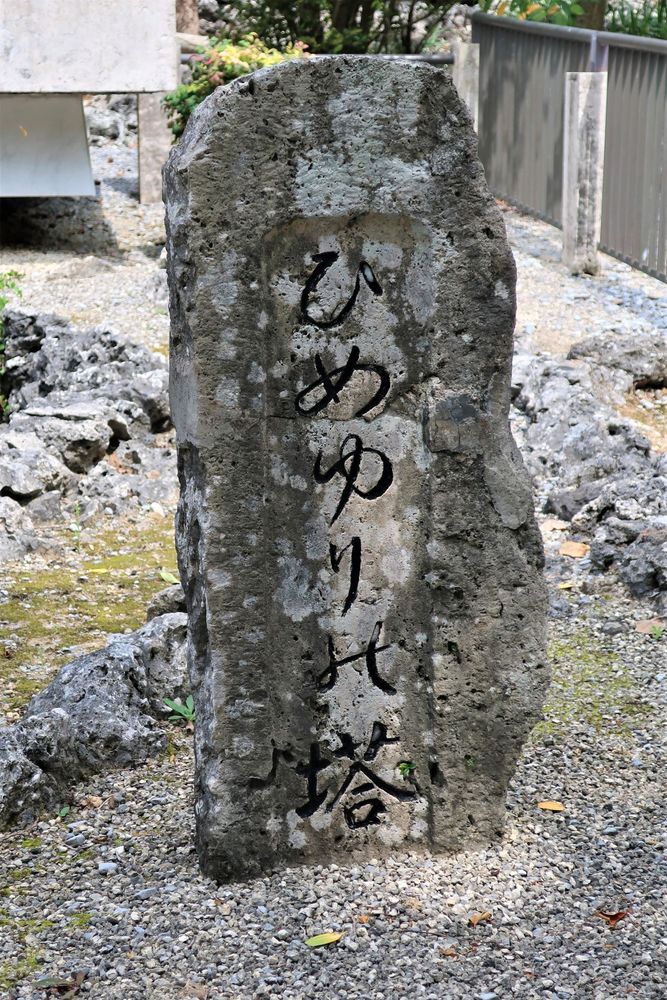 ひめゆりの塔